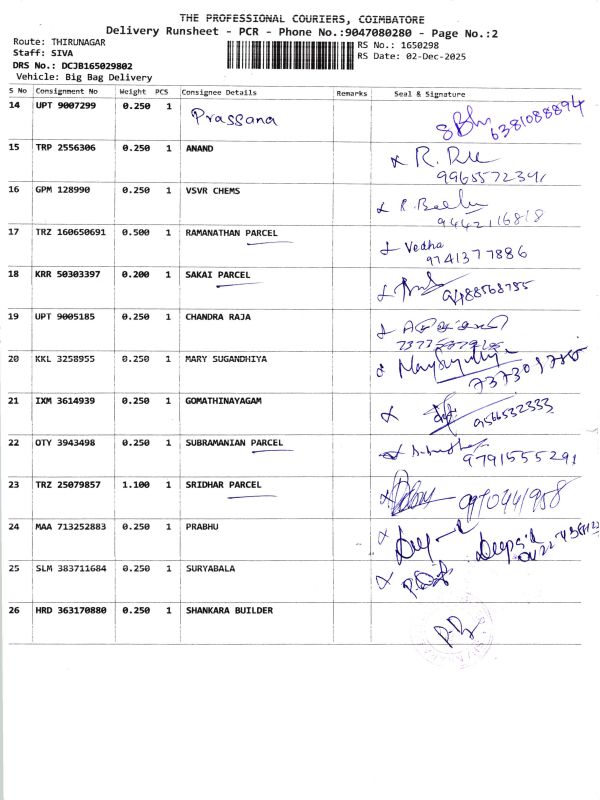 THE PROFESSIONAL COURIERS, COIMBATORE
Delivery Runsheet - PCR - Phone No.:9047080280 - Page No.:2
Route: THIRUNAGAR
Staff: SIVA
DRS No.: DCJB165029802
Vehicle: Big Bag Delivery
RS No.: 1650298
RS Date: 02-Dec-2025
S No Consignment No Weight PCS Consignee Details Remarks Seal & Signature
14 UPT 9007299 0.250 1 Prassana 6381088894
15 TRP 2556306 0.250 1 ANAND
16 GPM 128990 0.250 1 VSVR CHEMS
9442116818
17 TRZ 160650691 0.500 1 RAMANATHAN PARCEL Vedha
9741377886
18 KRR 50303397 0.200 1 SAKAI PARCEL
19 UPT 9005185 0.250 1 CHANDRA RAJA
20 KKL 3258955 0.250 1 MARY SUGANDHIYA
21 IXM 3614939 0.250 1 GOMATHINAYAGAM 9566532333
22 OTY 3943498 0.250 1 SUBRAMANIAN PARCEL
9791555291
23 TRZ 25079857 1.100 1 SRIDHAR PARCEL
24 MAA 713252883 0.250 1 PRABHU
25 SLM 383711684 0.250 1 SURYABALA
26 HRD 363170880 0.250 1 SHANKARA BUILDER